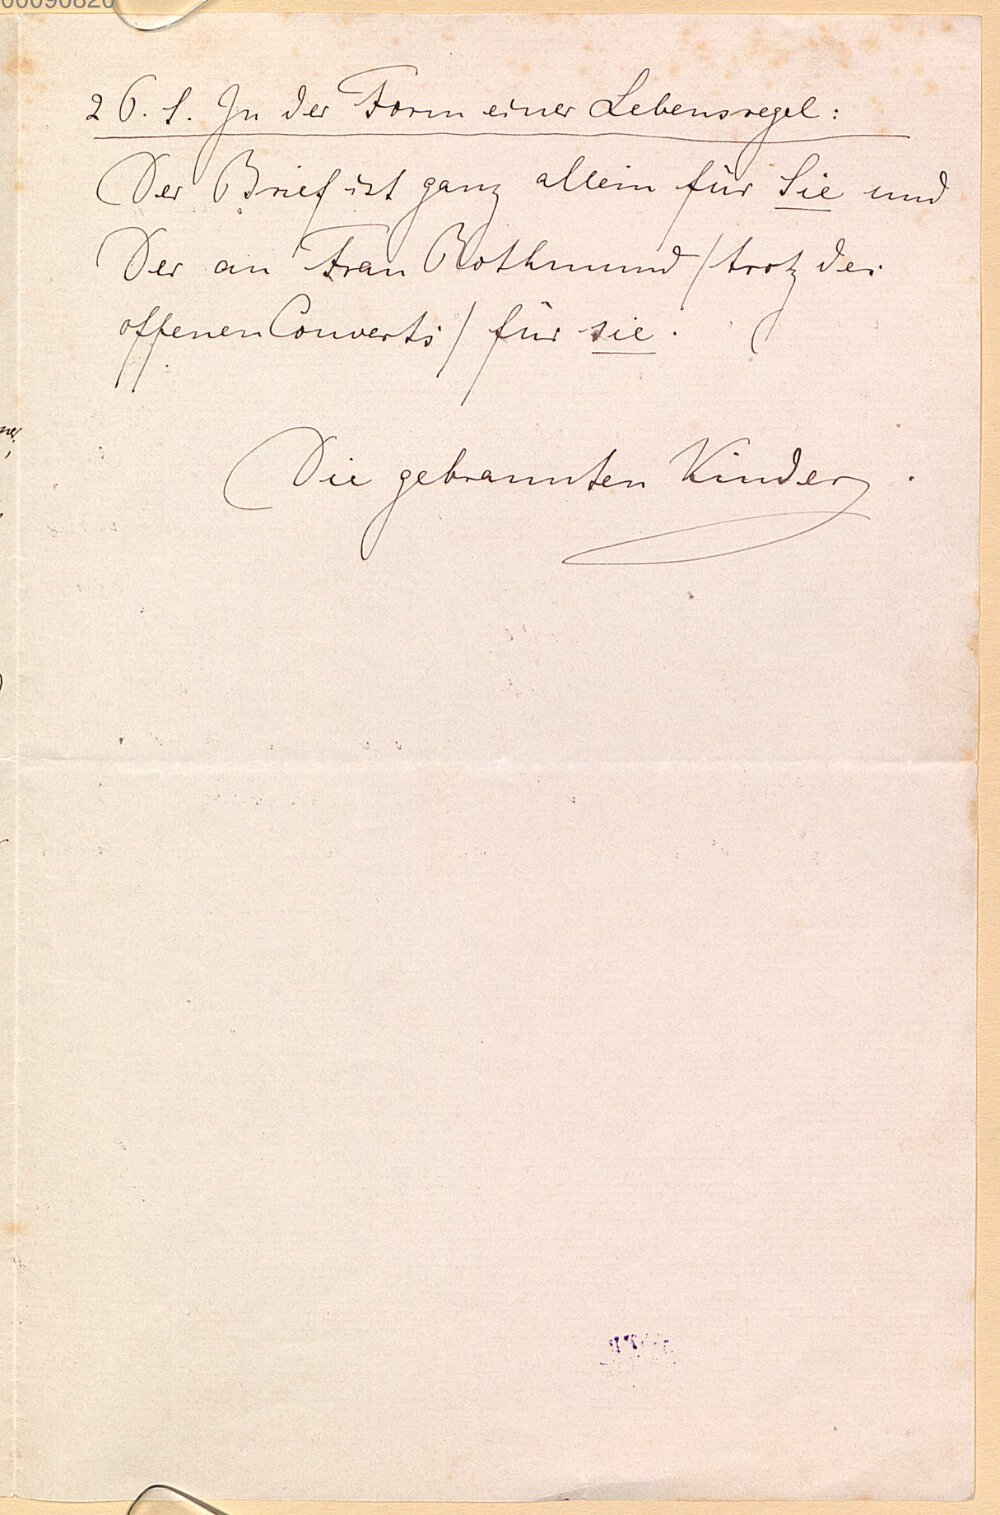 00090820
26. 1. In der Form einer Lebensregel:
Der Brief ist ganz allein für Sie und
Der an Frau Rothmund /trotz des
offenen Couverts/ für sie.
Die gebrannten Kinder.